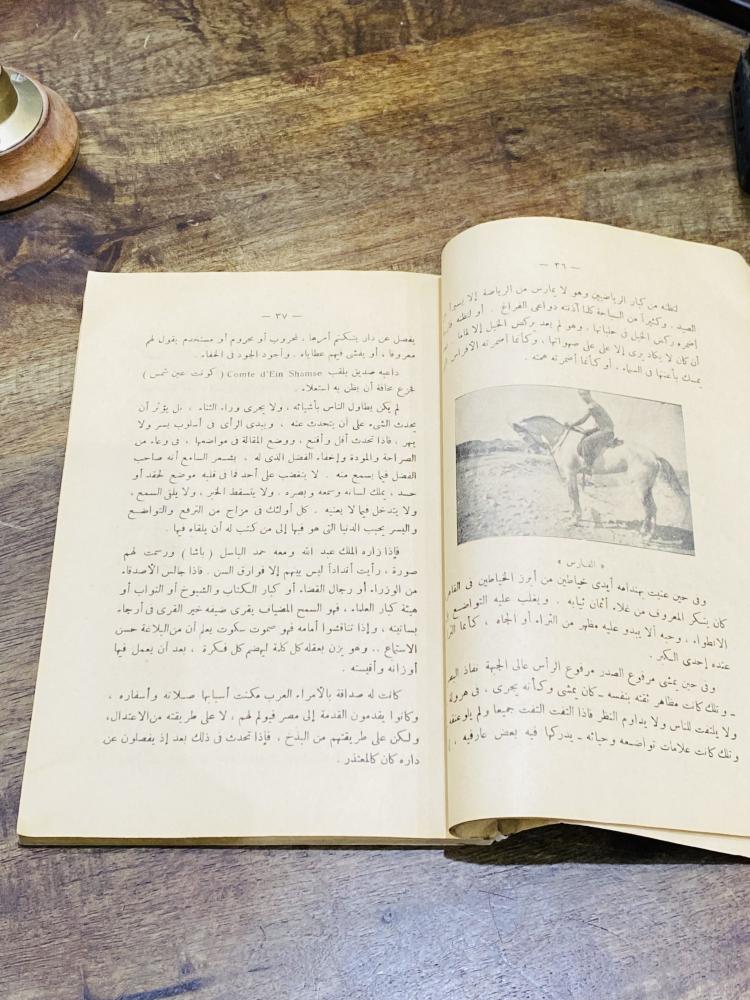 — ٣٦ —
لتظنه من كبار الرياضيين وهو لا يمارس من الرياضة إلا يسيرا
الصيد . وكثيراً من السباحة كلما آذنته دواعى الفراغ . أو لتظنه
أضمره ركض الخيل فى حلباتها ، وهو لم يعد يركض الخيل إلا لماما
أن كان لا يكاد يرى إلا على على صهواتها ، وكأنما أضمرته الأفراس
يمسك بأعنتها فى السماء . أو كأنما أضمرته همته .
« الفارس »
وفى حين عنيت بهندامه أيدى خياطين من أبرز الخياطين فى
كان ينكر المعروف من غلاء أثمان ثيابه . ويغلب عليه التواضع
الانطواء ، وحبه ألا يبدو عليه مظهر من الثراء أو الجاه ، كأنما
عنده إحدى الكبر .
وفى حين يمشى مرفوع الصدر مرفوع الرأس عالى الجبهة نفاذ
ـ وتلك كانت مظاهر ثقته بنفسه ـ كان يمشى وكأنه يجرى ، فى هرولة
ولا يلتفت للناس ولا يداوم النظر فاذا التفت التفت جميعا ولم
وتلك كانت علامات تواضعه وحيائه ـ يدركها فيه بعض عارفيه ،
— ٣٧ —
يفصل عن دار يتكتم أمرها ، لمحروب أو محروم أو مستخدم يقول لهم
معروفا ، أو يفشى فيهم عطاياه . وأجود الجود فى الخفاء .
داعبه صديق بلقب Comte d'Ein Shamse ( كونت عين شمس )
فجزع مخافة أن يظن به استعلاء .
لم يكن يطاول الناس بأشيائه ، ولا يجرى وراء الثناء ، بل يؤثر أن
يحدث الشىء على أن يتحدث عنه ، ويبدى الرأى فى أسلوب يسر ولا
يبهر ، فاذا تحدث أقل وأقنع ، ووضع المقالة فى مواضعها ، فى وعاء من
الصراحة والمودة وإخفاء الفضل الذى له ، يشعر السامع أنه صاحب
الفضل فيما يسمع منه . لا ينغضب على أحد فما فى قلبه موضع لحقد أو
حسد ، يملك لسانه وسمعه وبصره . ولا يتسقط الخبر ، ولا يلقى السمع ،
ولا يتدخل فيما لا يعنيه . كل أولئك فى مزاج من الترفع والتواضع
واليسر يحبب الدنيا التى هو فيها إلى من كتب له أن يلقاه فيها .
فإذا زاره الملك عبد الله ومعه حمد الباسل ( باشا ) ورسمت لهم
صورة ، رأيت أنداداً ليس بينهم إلا فوارق السن . فاذا جالس الأصدقاء
من الوزراء أو رجال القضاء أو كبار الكتاب والشيوخ أو النواب أو
هيئة كبار العلماء ، فهو السمح المضياف يقرى ضيفه خير القرى فى أرجاء
بساتينه ، وإذا تناقشوا أمامه فهو صموت سكوت يعلم أن من البلاغة حسن
الاستماع .. وهو يزن بعقله كل كلمة ليهضم كل فكرة ، بعد أن يعمل فيها
أوزانه وأقيسته .
كانت له صداقة بالأمراء العرب مكنت أسبابها صلاته وأسفاره ،
وكانوا يقدمون القدمة إلى مصر فيولم لهم ، لا على طريقته من الاعتدال ،
ولكن على طريقتهم من البذخ ، فإذا تحدث فى ذلك بعد إذ يفصلون عن
داره كان كالمعتذر .